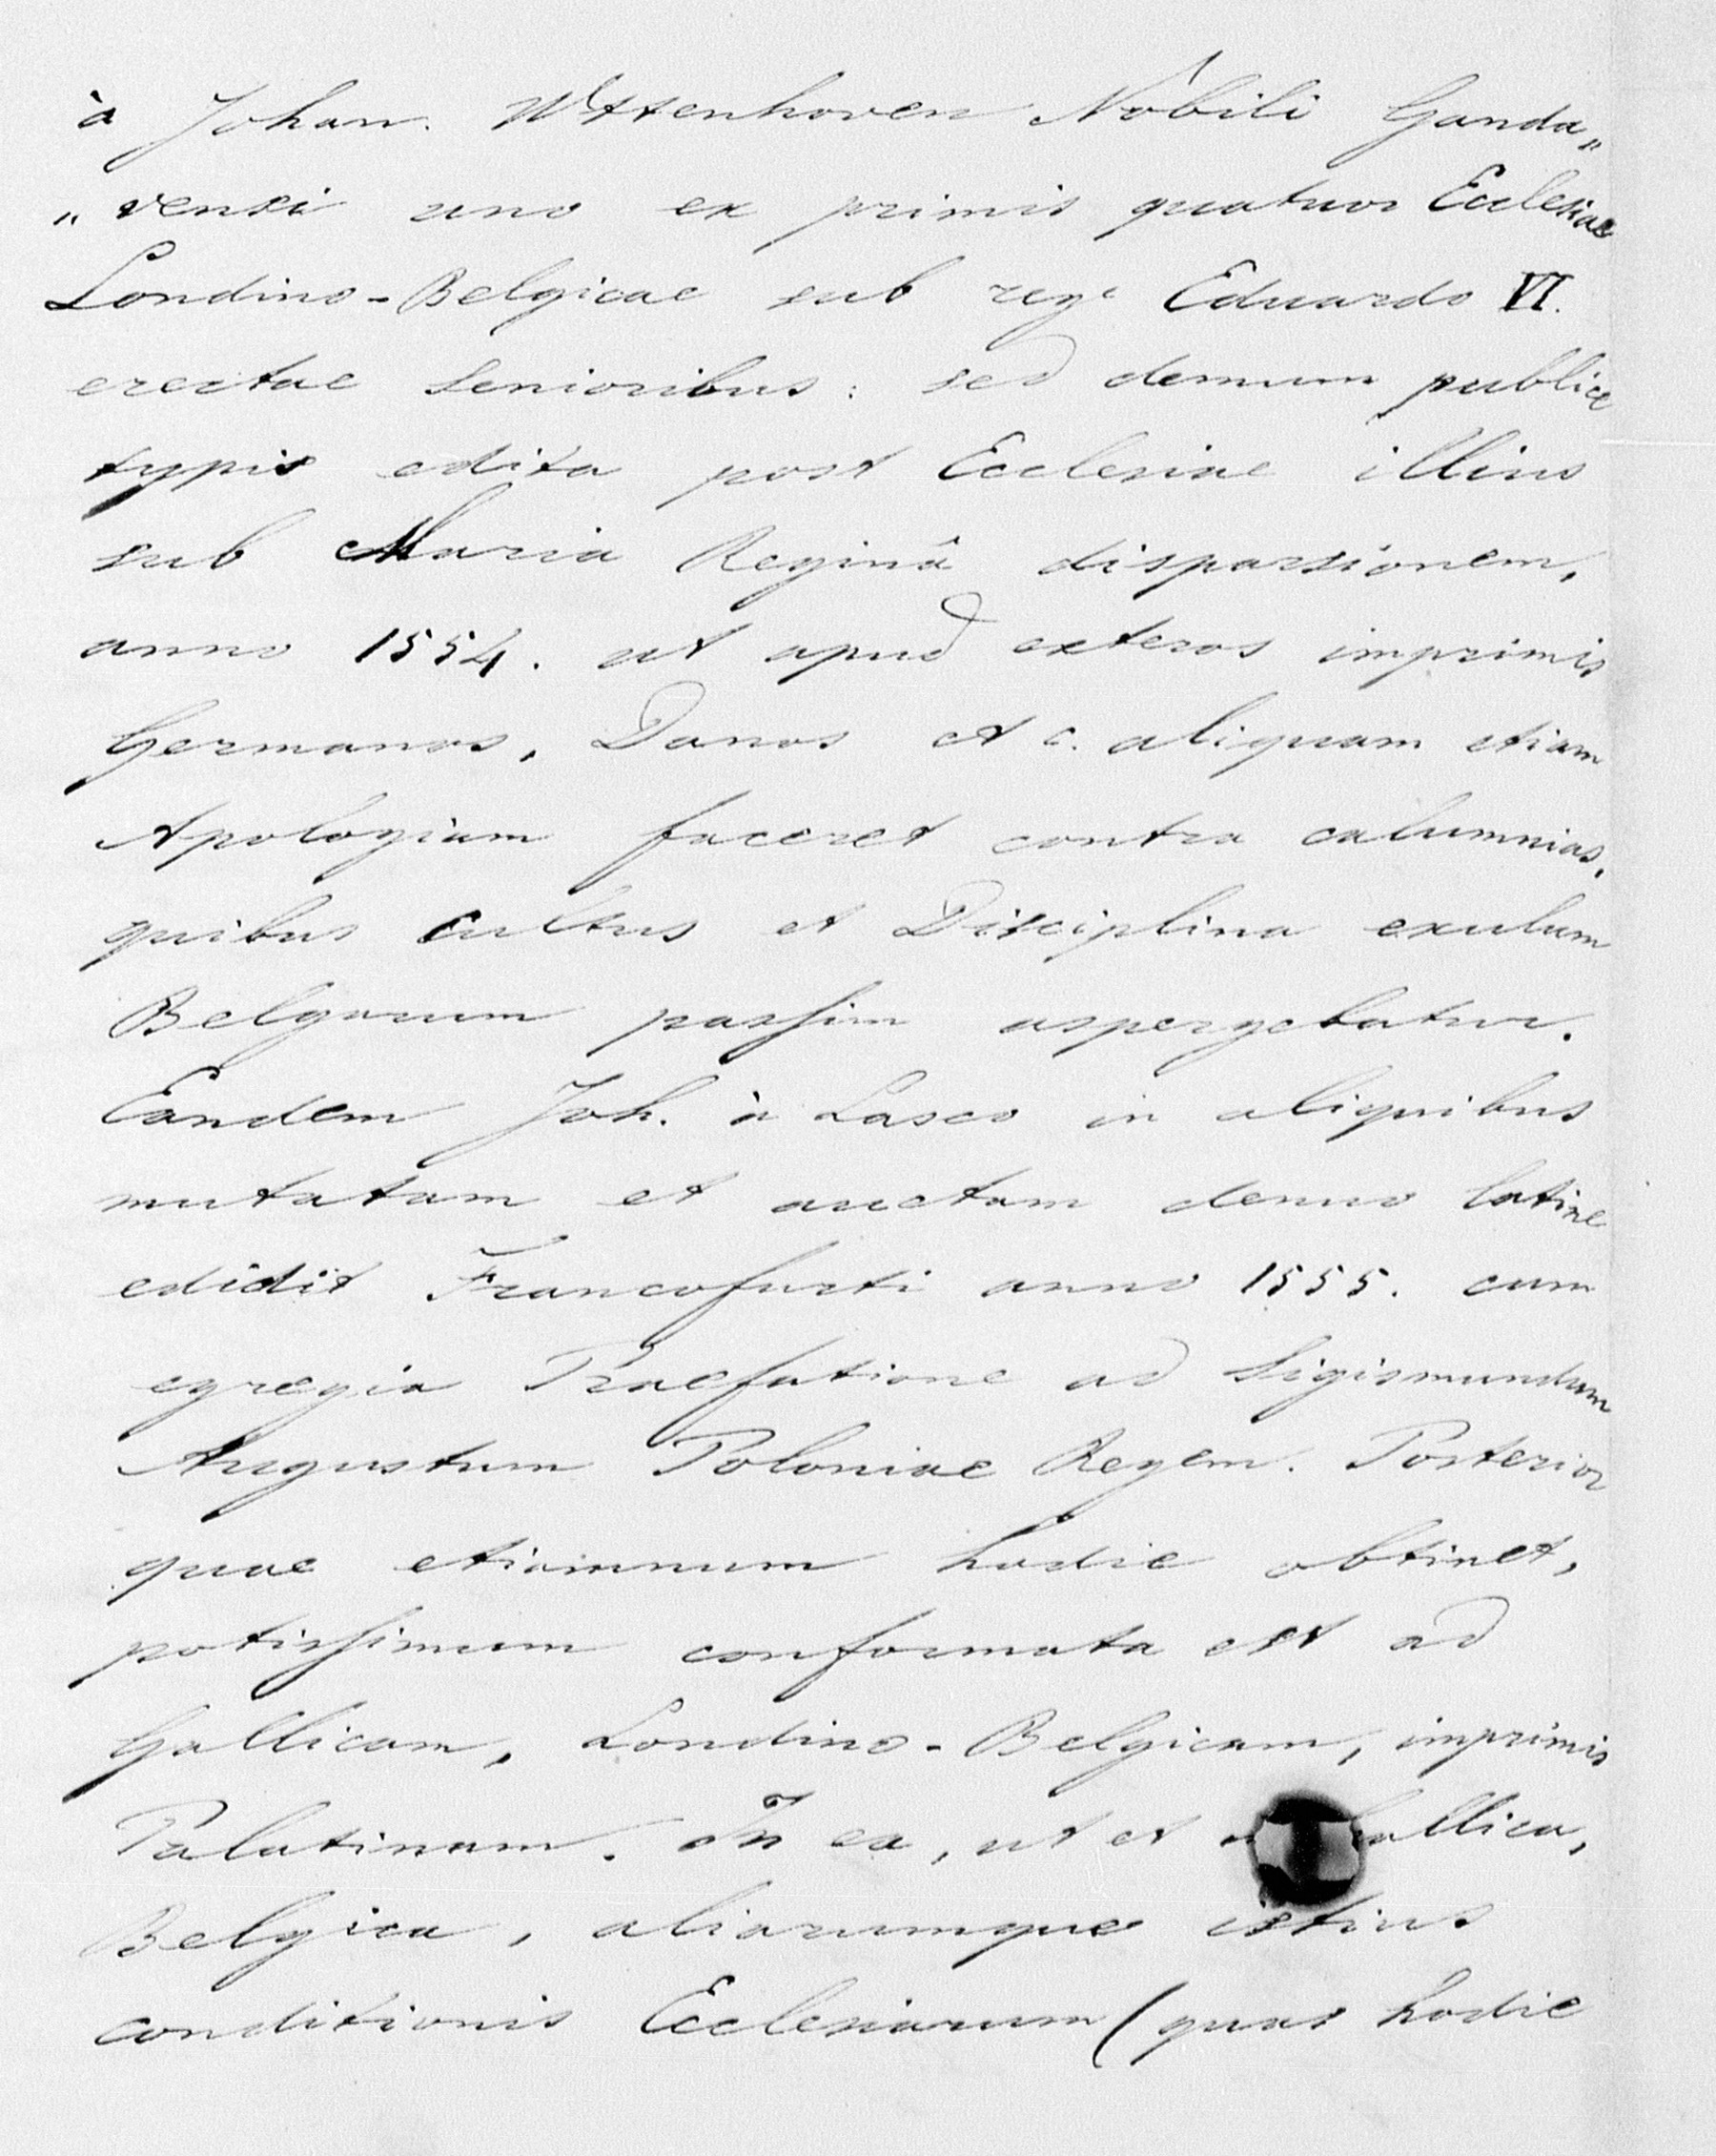 à Johan. Wttenhoven Nobili Ganda„
„vensi uno ex primis quatuor Ecclesiae
Londino-Belgicae sub rege Eduardo VI.
erectae Senioribus: sed demum publice
typis edita post Ecclesiae illius
sub Maria Reginâ disparsionem,
anno 1554. ut apud exteros imprimis
Germanos, Danos et c. aliquam etiam
Apologiam faceret contra calumnias,
quibus Cultus et Disciplina exulum
Belgarum passim aspergebatur.
Eandem Joh. à Lasco in aliquibus
mutatam et auctam denuo latine
edidit Francofurti anno 1555. cum
egregia Praefatione ad Sigismundum
Augustum Poloniae Regem. Posterior
quae etiamnum hodie obtinet,
potissimum conformata est ad
Gallicam, Londino-Belgicam, imprimis
Palatinam. In ea, ut et allica,
Belgica, aliarumque istius
conditionis Ecclesiarum (quas hodie